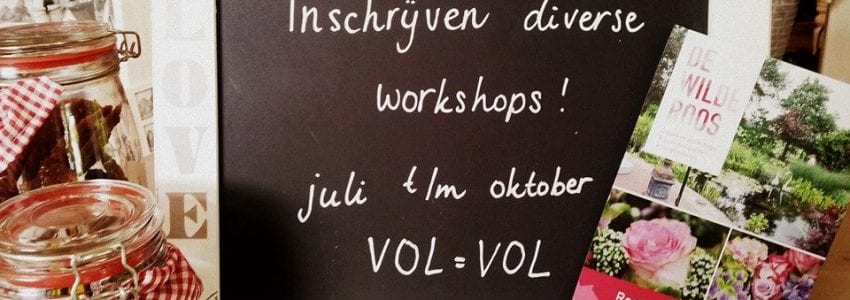 LOVE
Inschrÿven diverse
workshops!
juli t/m oktober
VOL = VOL
DE
WILDE
ROOS